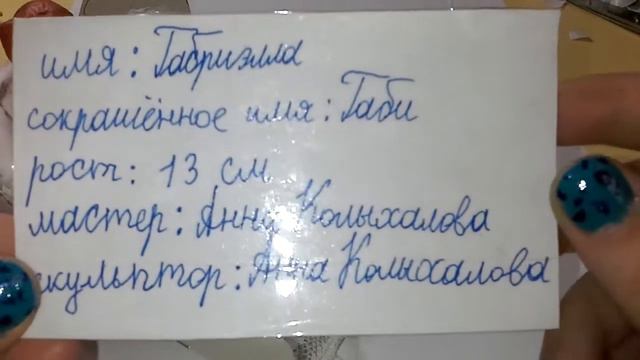 имя: Габриэлла
сокращённое имя: Габи
рост: 13 см
мастер: Анна Колыхалова
скульптор: Анна Колыхалова